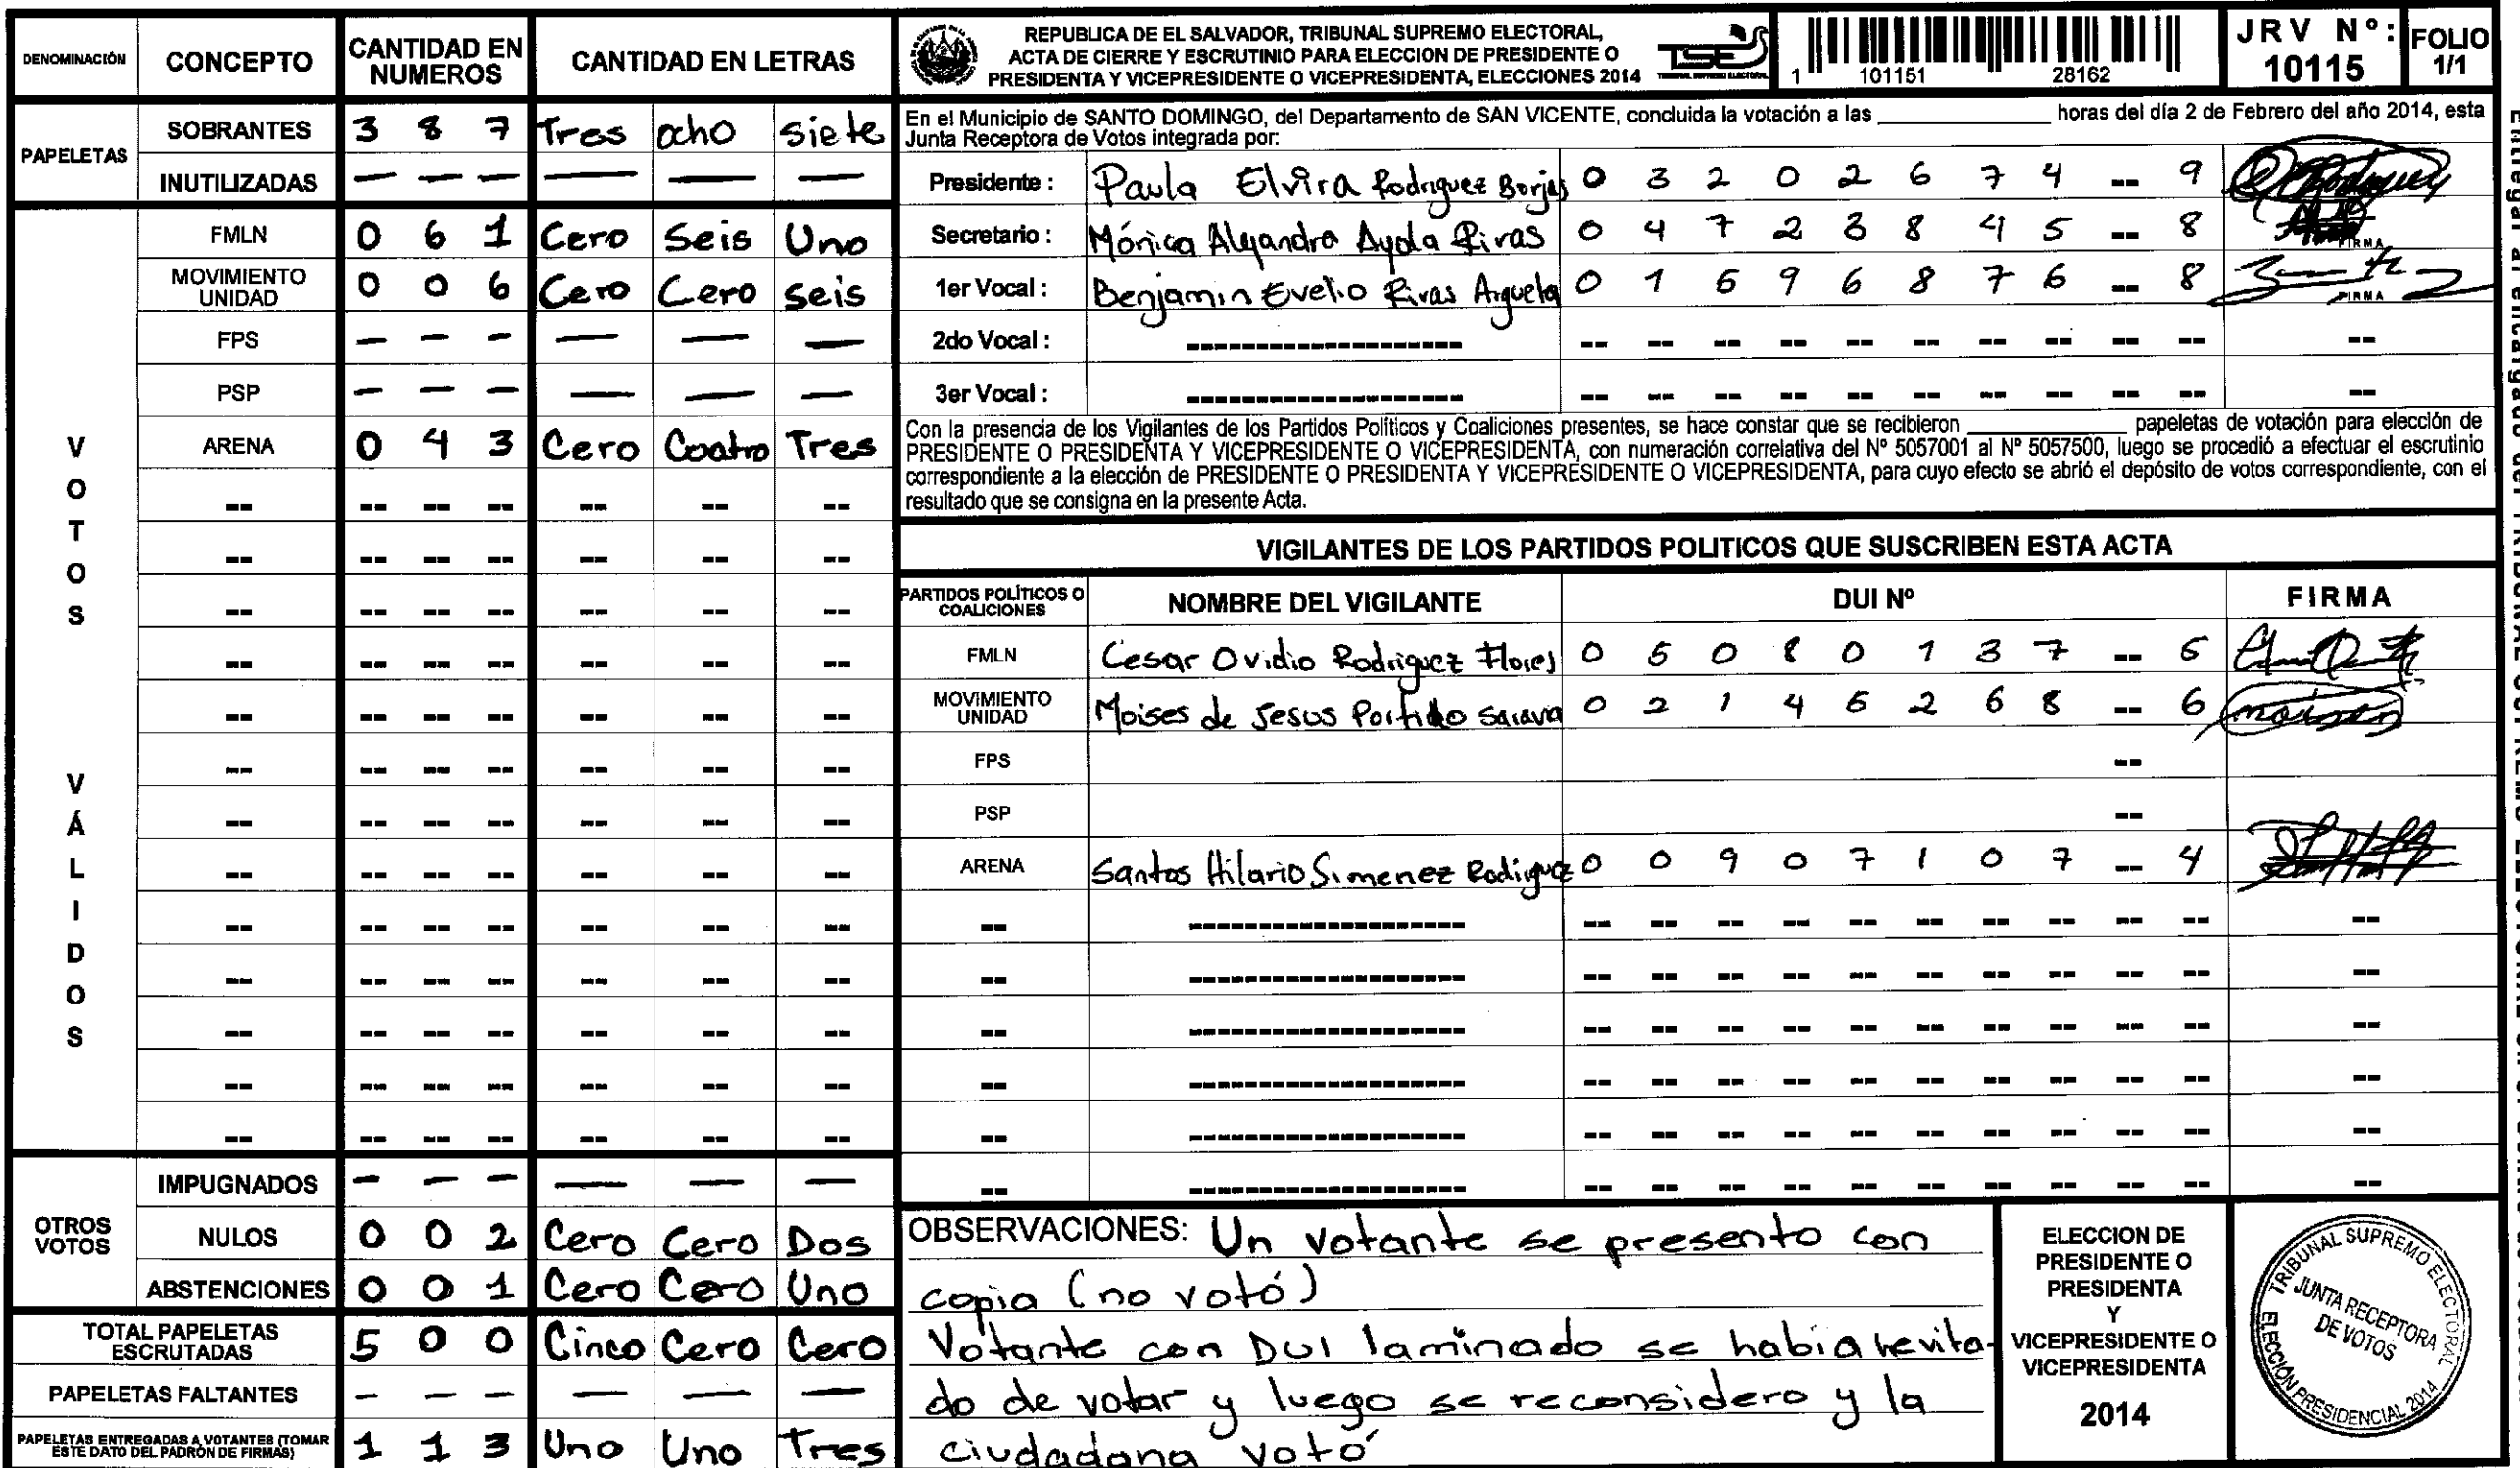 DENOMINACIÓN CONCEPTO CANTIDAD EN NUMEROS CANTIDAD EN LETRAS
PAPELETAS
SOBRANTES 3 8 7 Tres ocho siete
INUTILIZADAS — — — — — —
VOTOS VÁLIDOS
FMLN 0 6 1 Cero Seis Uno
MOVIMIENTO UNIDAD 0 0 6 Cero Cero seis
FPS — — — — — —
PSP — — — — — —
ARENA 0 4 3 Cero Coatro Tres
-- -- -- -- -- -- --
-- -- -- -- -- -- --
-- -- -- -- -- -- --
-- -- -- -- -- -- --
-- -- -- -- -- -- --
-- -- -- -- -- -- --
-- -- -- -- -- -- --
-- -- -- -- -- -- --
-- -- -- -- -- -- --
-- -- -- -- -- -- --
-- -- -- -- -- -- --
-- -- -- -- -- -- --
-- -- -- -- -- -- --
OTROS VOTOS
IMPUGNADOS — — — — — —
NULOS 0 0 2 Cero Cero Dos
ABSTENCIONES 0 0 1 Cero Cero Uno
TOTAL PAPELETAS ESCRUTADAS 5 0 0 Cinco Cero Cero
PAPELETAS FALTANTES — — — — — —
PAPELETAS ENTREGADAS A VOTANTES (TOMAR ESTE DATO DEL PADRÓN DE FIRMAS) 1 1 3 Uno Uno Tres
REPUBLICA DE EL SALVADOR, TRIBUNAL SUPREMO ELECTORAL,
ACTA DE CIERRE Y ESCRUTINIO PARA ELECCION DE PRESIDENTE O
PRESIDENTA Y VICEPRESIDENTE O VICEPRESIDENTA, ELECCIONES 2014
TSE
TRIBUNAL SUPREMO ELECTORAL
1 101151 28162
JRV Nº: 10115
FOLIO 1/1
En el Municipio de SANTO DOMINGO, del Departamento de SAN VICENTE, concluida la votación a las ____________ horas del día 2 de Febrero del año 2014, esta
Junta Receptora de Votos integrada por:
Presidente : Paula Elvira Rodriguez Borjas 0 3 2 0 2 6 7 4 -- 9
Secretario : Mónica Alejandra Ayala Rivas 0 4 7 2 3 8 4 5 -- 8 FIRMA
1er Vocal : Benjamin Evelio Rivas Argueta 0 1 6 9 6 8 7 6 -- 8 FIRMA
2do Vocal : ------------------- -- -- -- -- -- -- -- -- -- -- --
3er Vocal : ------------------- -- -- -- -- -- -- -- -- -- -- --
Con la presencia de los Vigilantes de los Partidos Políticos y Coaliciones presentes, se hace constar que se recibieron ____________ papeletas de votación para elección de
PRESIDENTE O PRESIDENTA Y VICEPRESIDENTE O VICEPRESIDENTA, con numeración correlativa del Nº 5057001 al Nº 5057500, luego se procedió a efectuar el escrutinio
correspondiente a la elección de PRESIDENTE O PRESIDENTA Y VICEPRESIDENTE O VICEPRESIDENTA, para cuyo efecto se abrió el depósito de votos correspondiente, con el
resultado que se consigna en la presente Acta.
VIGILANTES DE LOS PARTIDOS POLITICOS QUE SUSCRIBEN ESTA ACTA
PARTIDOS POLÍTICOS O COALICIONES NOMBRE DEL VIGILANTE DUI Nº FIRMA
FMLN Cesar Ovidio Rodriguez Flores 0 5 0 8 0 1 3 7 -- 6
MOVIMIENTO UNIDAD Moises de Jesus Portido sarava 0 2 1 4 5 2 6 8 -- 6
FPS --
PSP --
ARENA Santos Hilario Simenez Rodriguez 0 0 9 0 7 1 0 7 -- 4
-- ------------------- -- -- -- -- -- -- -- -- -- -- --
-- ------------------- -- -- -- -- -- -- -- -- -- -- --
-- ------------------- -- -- -- -- -- -- -- -- -- -- --
-- ------------------- -- -- -- -- -- -- -- -- -- -- --
-- ------------------- -- -- -- -- -- -- -- -- -- -- --
-- ------------------- -- -- -- -- -- -- -- -- -- -- --
OBSERVACIONES: Un votante se presento con
copia (no votó)
Votante con DUI laminado se habia hevita-
do de votar y luego se reconsidero y la
ciudadana votó
ELECCION DE
PRESIDENTE O
PRESIDENTA
Y
VICEPRESIDENTE O
VICEPRESIDENTA
2014
TRIBUNAL SUPREMO ELECTORAL
JUNTA RECEPTORA
DE VOTOS
ELECCIÓN PRESIDENCIAL 2014